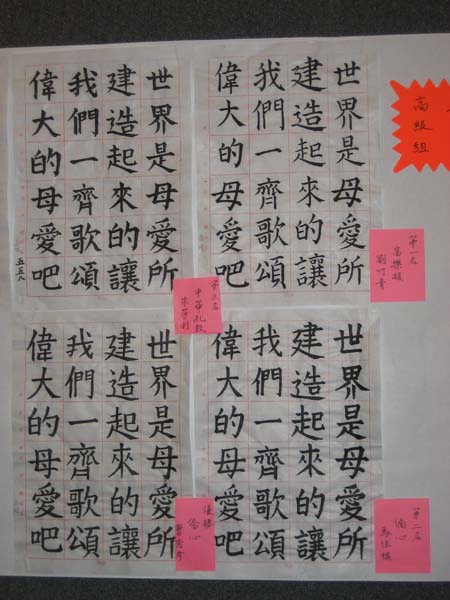 高級組
世界是母愛所
建造起來的讓
我們一齊歌頌
偉大的母愛吧
第一名
世界是母愛所
建造起來的讓
我們一齊歌頌
偉大的母愛吧
五五八
第三名
中華孔教
世界是母愛所
建造起來的讓
我們一齊歌頌
偉大的母愛吧
第二名
僑心
世界是母愛所
建造起來的讓
我們一齊歌頌
偉大的母愛吧
優勝
僑心